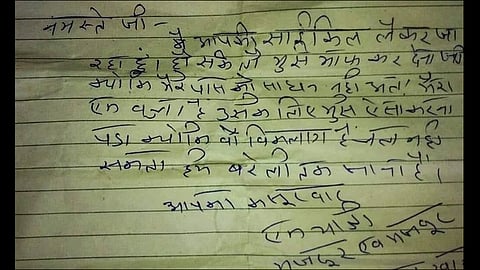 नमस्ते जी -
मै आपकी साईकिल लेकर जा
रहा हुं। हो सके तो मुझे माफ कर देना जी
क्योकि मेरे पास को साधन नही था। मेरा
एक बच्चा है उसके लिए मुझे ऐसा करना
पडा क्योकि वो विकलांग है चल नही
सकता हमे बरेली तक जाना है।
आपका कसूरवार
एक यात्री
मजदूर एवं मजबूर